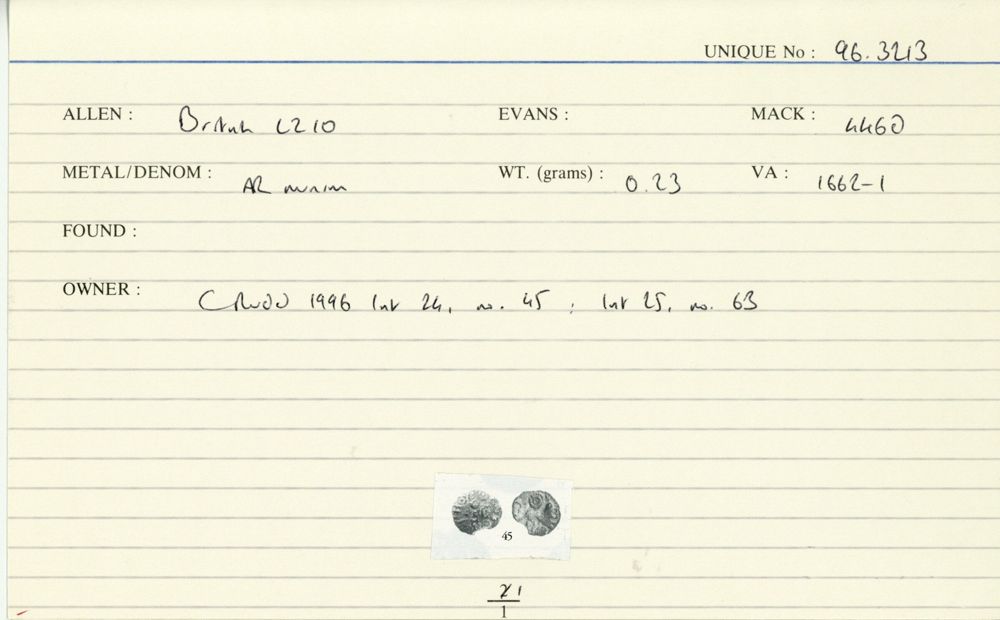 UNIQUE No : 96.3213
ALLEN : British LZ10 EVANS : MACK : 446D
METAL/DENOM : AR minim WT. (grams) : 0.23 VA : 1662-1
FOUND :
OWNER : C RUDD 1996 list 24, no. 45 ; list 25, no. 63
45
1
1